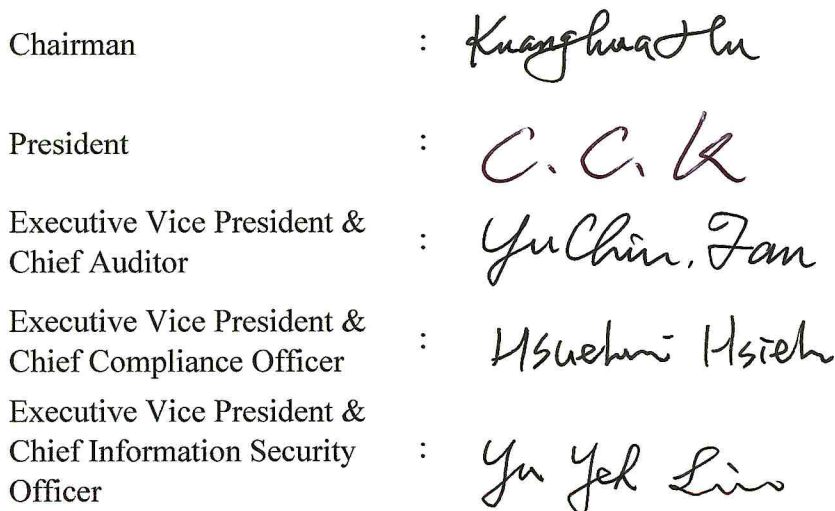 Chairman : Kuanghua Hu
President : C. C. K
Executive Vice President &
Chief Auditor : Yu Chin, Fan
Executive Vice President &
Chief Compliance Officer : Hsiehmi Hsieh
Executive Vice President &
Chief Information Security : Yu Yeh Lin
Officer